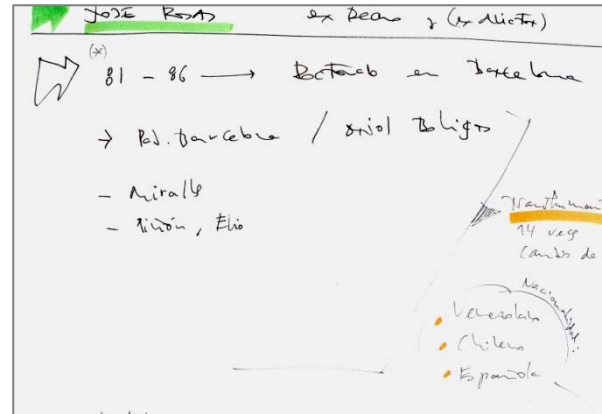 JOSE ROSAS ex Decano y (ex director)
(*)
81 - 86 → Doctorado en Barcelona
→ Pab. Barcelona / Oriol Bohigas
- Miralles
- Piñón, Elio
14 veces
Nacionalidad:
• Venezolana
• Chilena
• Española